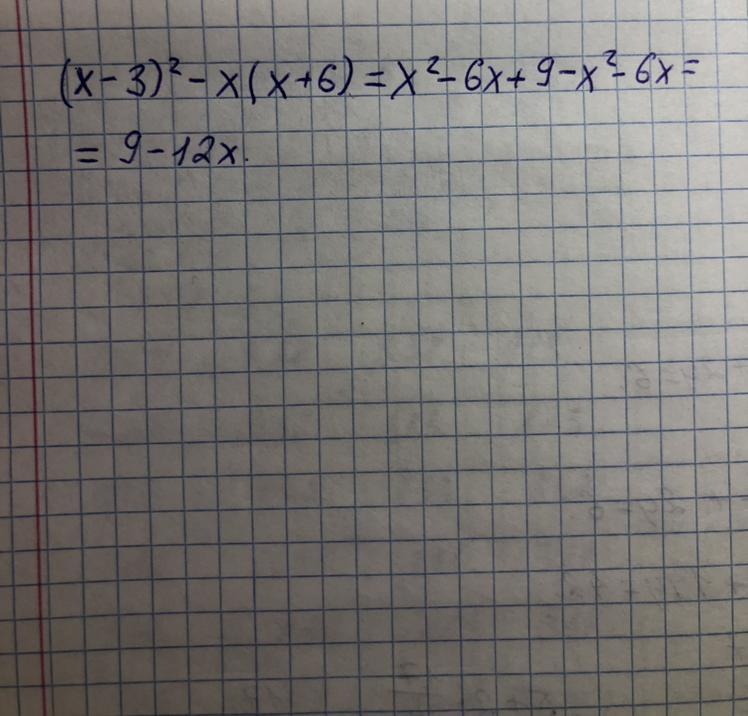 (x-3)² - x(x+6) = x² - 6x + 9 - x² - 6x =
= 9 - 12x.